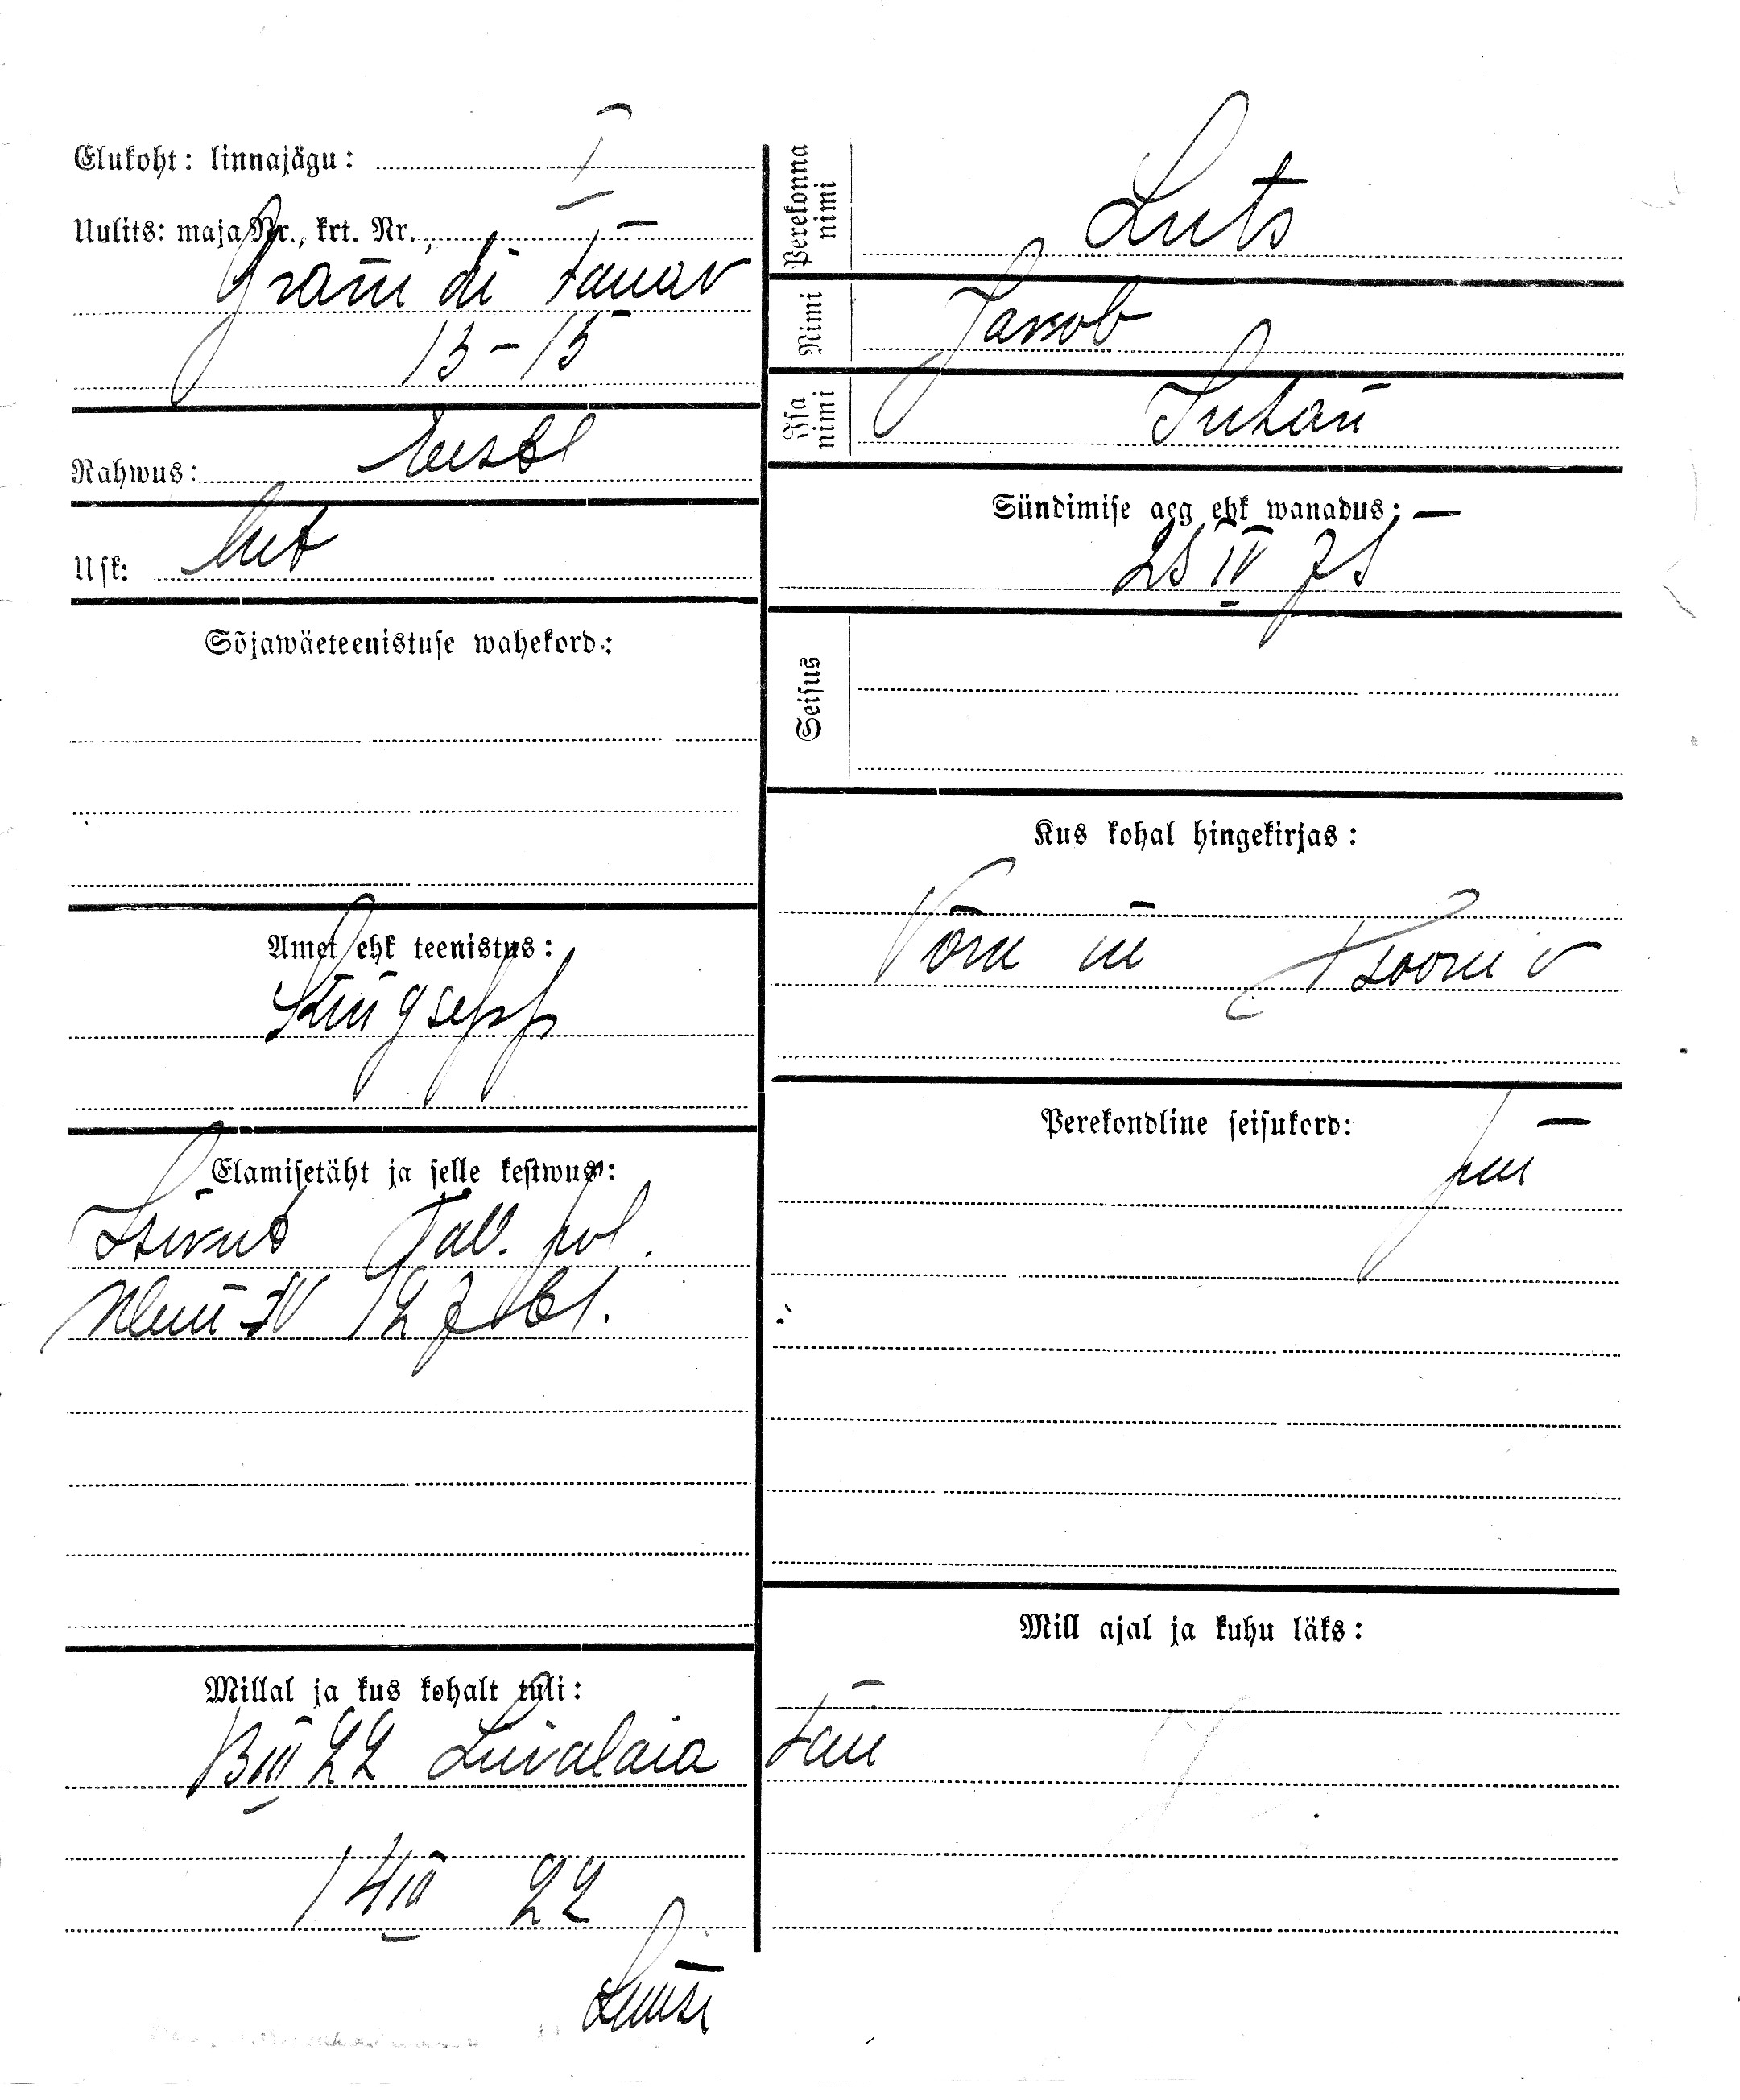 Elukoht: linnajagu: I
Uulits: maja Nr., krt. Nr.
Graniidi tänav
13-15
Rahwus: Eestl
Usk: Lut
Sõjawäeteenistuse wahekord:
Amet ehk teenistus:
Kingsepp
Elamisetäht ja selle kestwus:
Isikut Tall. pol.
IV 127 61.
Millal ja kus kohalt tuli:
13 III 22 Liivalaia tän
14 III 22
Perekonna nimi
Luts
Nimi
Jakob
Isa nimi
Juhan
Sündimise aeg ehk wanadus:
25 IV 75
Seisus
Kus kohal hingekirjas:
Võru m Tsooru v
Perekondline seisukord:
Mill ajal ja kuhu läks: